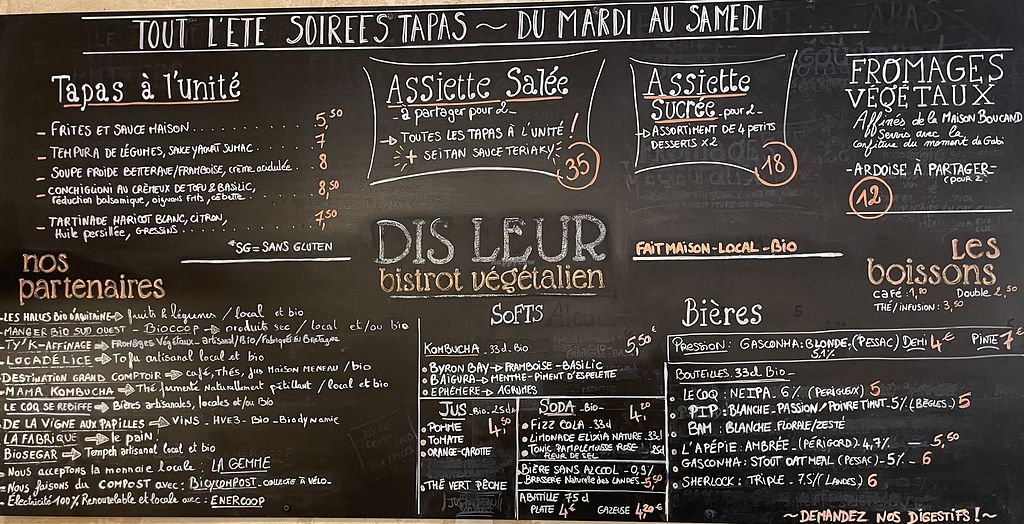 TOUT L'ETE SOIREES TAPAS ~ DU MARDI AU SAMEDI
Tapas à l'unité
- FRITES ET SAUCE MAISON . . . . . 5,50
- TEMPURA DE LÉGUMES, SAUCE YAOURT SUMAC . . . 7
- SOUPE FROIDE BETTERAVE/FRAMBOISE, crème acidulée . . 8
- CONCHIGLIONI AU CRÉMEUX DE TOFU & BASILIC,
réduction balsamique, oignons frits, cébette . . . 8,50
- TARTINADE HARICOT BLANC, CITRON,
Huile persillée, GRESSINS . . . 7,50
*SG = SANS GLUTEN
Assiette Salée
- à partager pour 2 -
→ TOUTES LES TAPAS À L'UNITÉ !
+ SEITAN SAUCE TERIAKY
35
Assiette
Sucrée - pour 2 -
→ ASSORTIMENT DE 4 PETITS
DESSERTS x2
18
FROMAGES
VÉGÉTAUX
Affinés de la MAISON BOUCAND
Servis avec la
confiture du moment de Gabi
- ARDOISE À PARTAGER -
(POUR 2)
12
DIS LEUR
bistrot végétalien
FAIT MAISON - LOCAL - BIO
nos
partenaires
- LES HALLES BIO D'AQUITAINE → fruits & légumes / local et bio
- MANGER BIO SUD OUEST - BIOCOOP → produits sec / local et/ou bio
- TY'K-AFFINAGE → FROMAGES VÉGÉTAUX - artisanal/Bio/FABRIQUÉ EN BRETAGNE
- LOCADÉLICE → Tofu artisanal local et bio
- DESTINATION GRAND COMPTOIR → café, THÉS, JUS MAISON MENEAU / bio
- MAMA KOMBUCHA → Thé fermenté Naturellement pétillant / local et bio
- LE COQ SE REBIFFE → Bières artisanales, locales et/ou Bio
- DE LA VIGNE AUX PAPILLES → VINS - HVE3 - BIO - Biodynamie
- LA FABRIQUE → le pain
- BIOSEGAR → Tempeh artisanal local et bio
- Nous acceptons la monnaie locale : LA GEMME
- Nous faisons du COMPOST avec : BIG YCOMPOST - COLLECTE À VÉLO -
- Electricité 100% Renouvelable et locale avec : ENERCOOP
SOFTS
KOMBUCHA - 33cl. Bio 5,50€
• BYRON BAY → FRAMBOISE - BASILIC
• BAÏGURA → MENTHE - PIMENT D'ESPELETTE
• EPHÉMÈRE → AGRUMES
JUS - Bio - 25cl 4,50
• POMME
• TOMATE
• ORANGE-CAROTTE
• THÉ VERT PÊCHE
SODA - Bio - 4,20
• FIZZ COLA - 33cl
• LIMONADE ELIXIA NATURE - 33cl
• TONIC PAMPLEMOUSSE ROSE - 25cl
FLEUR DE SEL
• BIÈRE SANS ALCOOL - 0,9%
BRASSERIE NATURELLE DES LANDES - 5,50
ABATILLE 75cl
PLATE 4€ GAZEUSE 4,20€
Les
boissons
CAFÉ : 1,80 Double 2,50
THÉ / INFUSION : 3,50
Bières
PRESSION : GASCONHA : BLONDE, (PESSAC) DEMI 4€ PINTE 7€
5,1%
BOUTEILLES. 33cl Bio -
• LE COQ : NEIPA 6% (PERIGUEUX) 5
• PIP : BLANCHE - PASSION / POIVRE TIMUT - 5% (BÈGLES) - 5
• BAM : BLANCHE FLORALE/ZESTÉ
• L'APÉPIE : AMBRÉE (PÉRIGORD) 4,7% - 5,50
• GASCONHA : STOUT OATMEAL (PESSAC) - 5% - 6
• SHERLOCK : TRIPLE - 7,5% (LANDES) 6
~ DEMANDEZ NOS DIGESTIFS ! ~